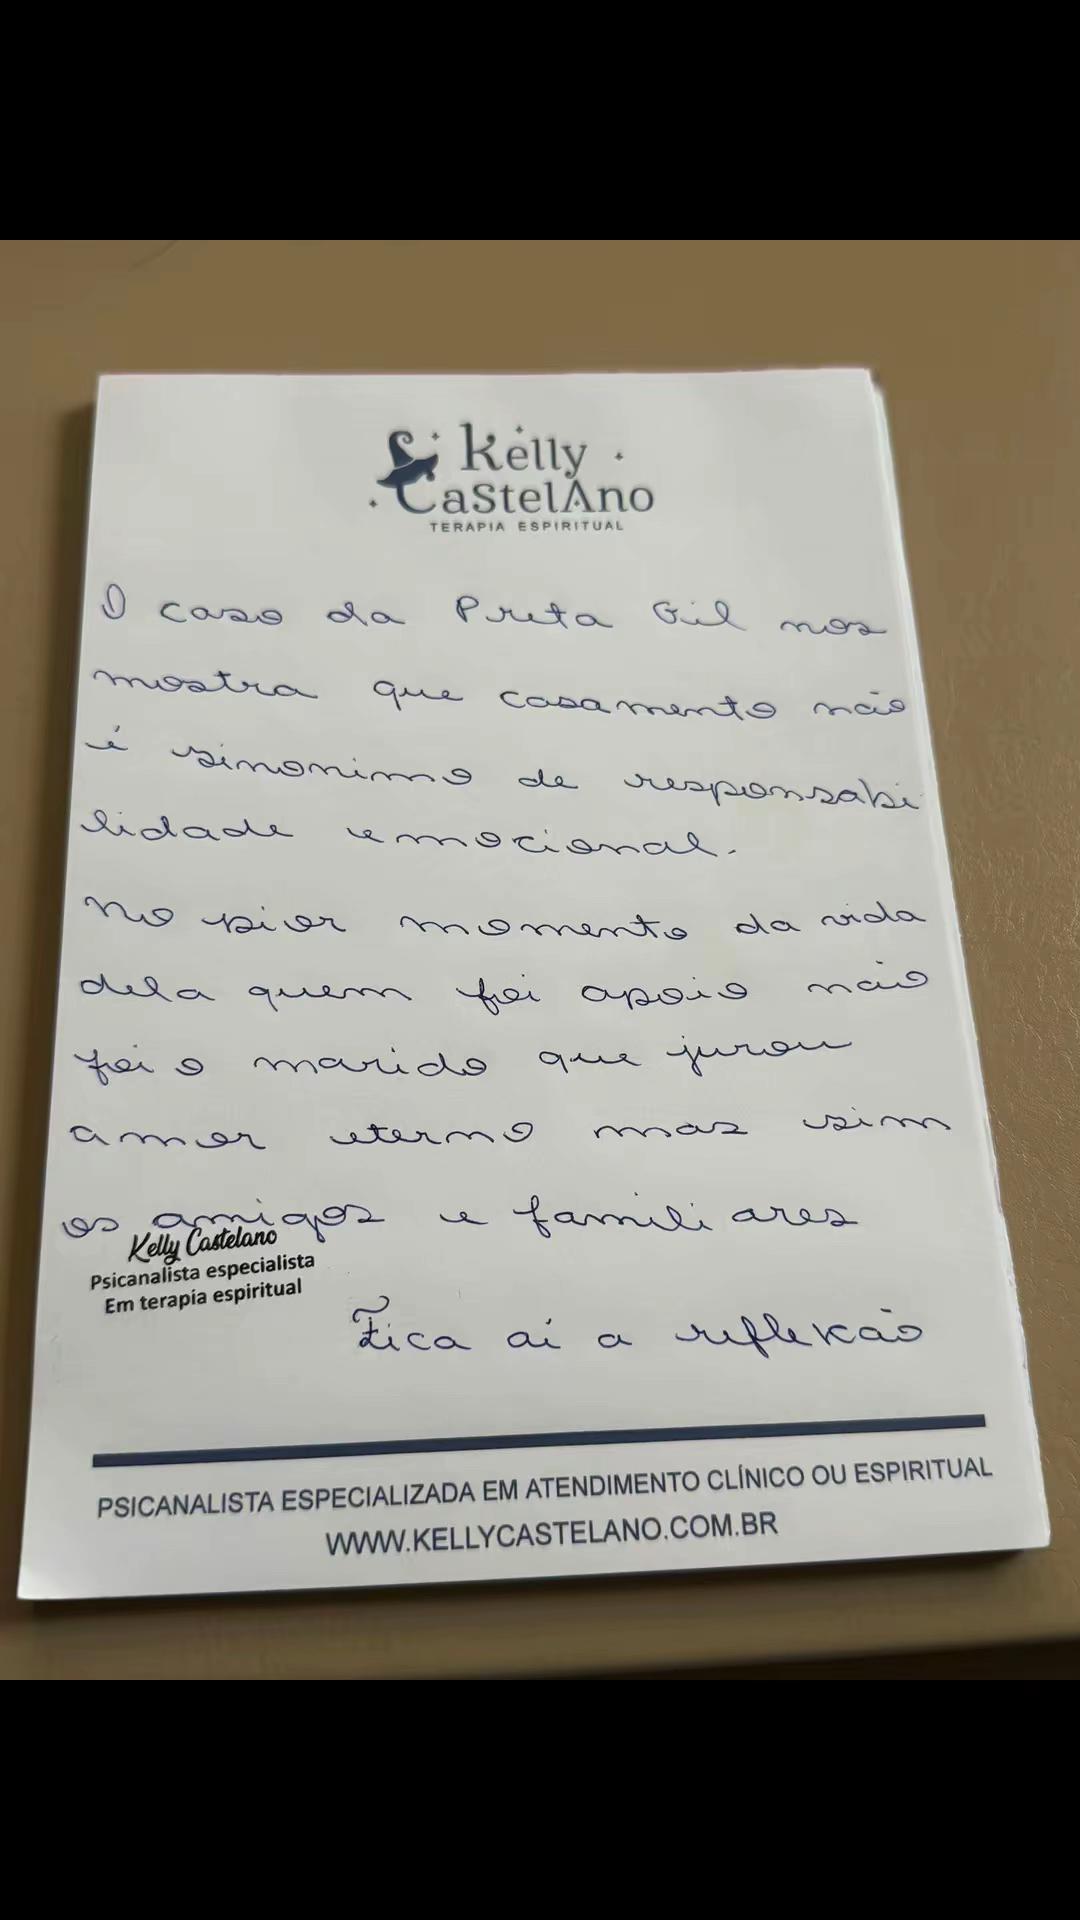 Kelly
CaStelAno
TERAPIA ESPIRITUAL
O caso da Preta Gil nos
mostra que casamento não
é sinonimo de responsabi
lidade emocional.
No pior momento da vida
dela quem foi apoio não
foi o marido que jurou
amor eterno mas sim
os amigos e familiares
Kelly Castelano
Psicanalista especialista
Em terapia espiritual
Fica aí a reflexão
PSICANALISTA ESPECIALIZADA EM ATENDIMENTO CLÍNICO OU ESPIRITUAL
WWW.KELLYCASTELANO.COM.BR